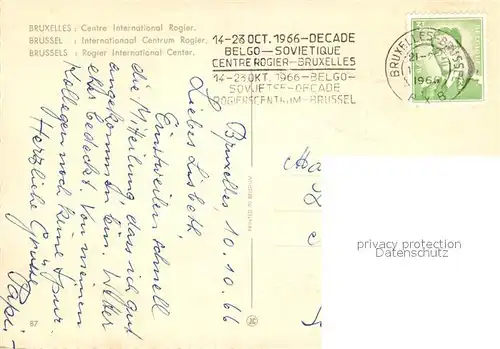 BRUXELLES : Centre International Rogier.
BRUSSEL : Internationaal Centrum Rogier.
BRUSSELS : Rogier International Center.
14-23 OCT. 1966-DECADE
BELGO-SOVIETIQUE
CENTRE ROGIER-BRUXELLES
14-23 OKT. 1966-BELGO-
SOVJETSE-DECADE
ROGIERSCENTRUM-BRUSSEL
BRUXELLES-BRUSSEL
1966
Bruxelles, 10.10.66
Liebes Lisbeth,
Einstweilen schnell
die Mitteilung, dass ich gut
angekommen bin. Wetter
eher bedeckt. Von meinen
Kollegen noch keine Spur.
Herzliche Grüsse
Papi-
87
privacy protection
Datenschutz